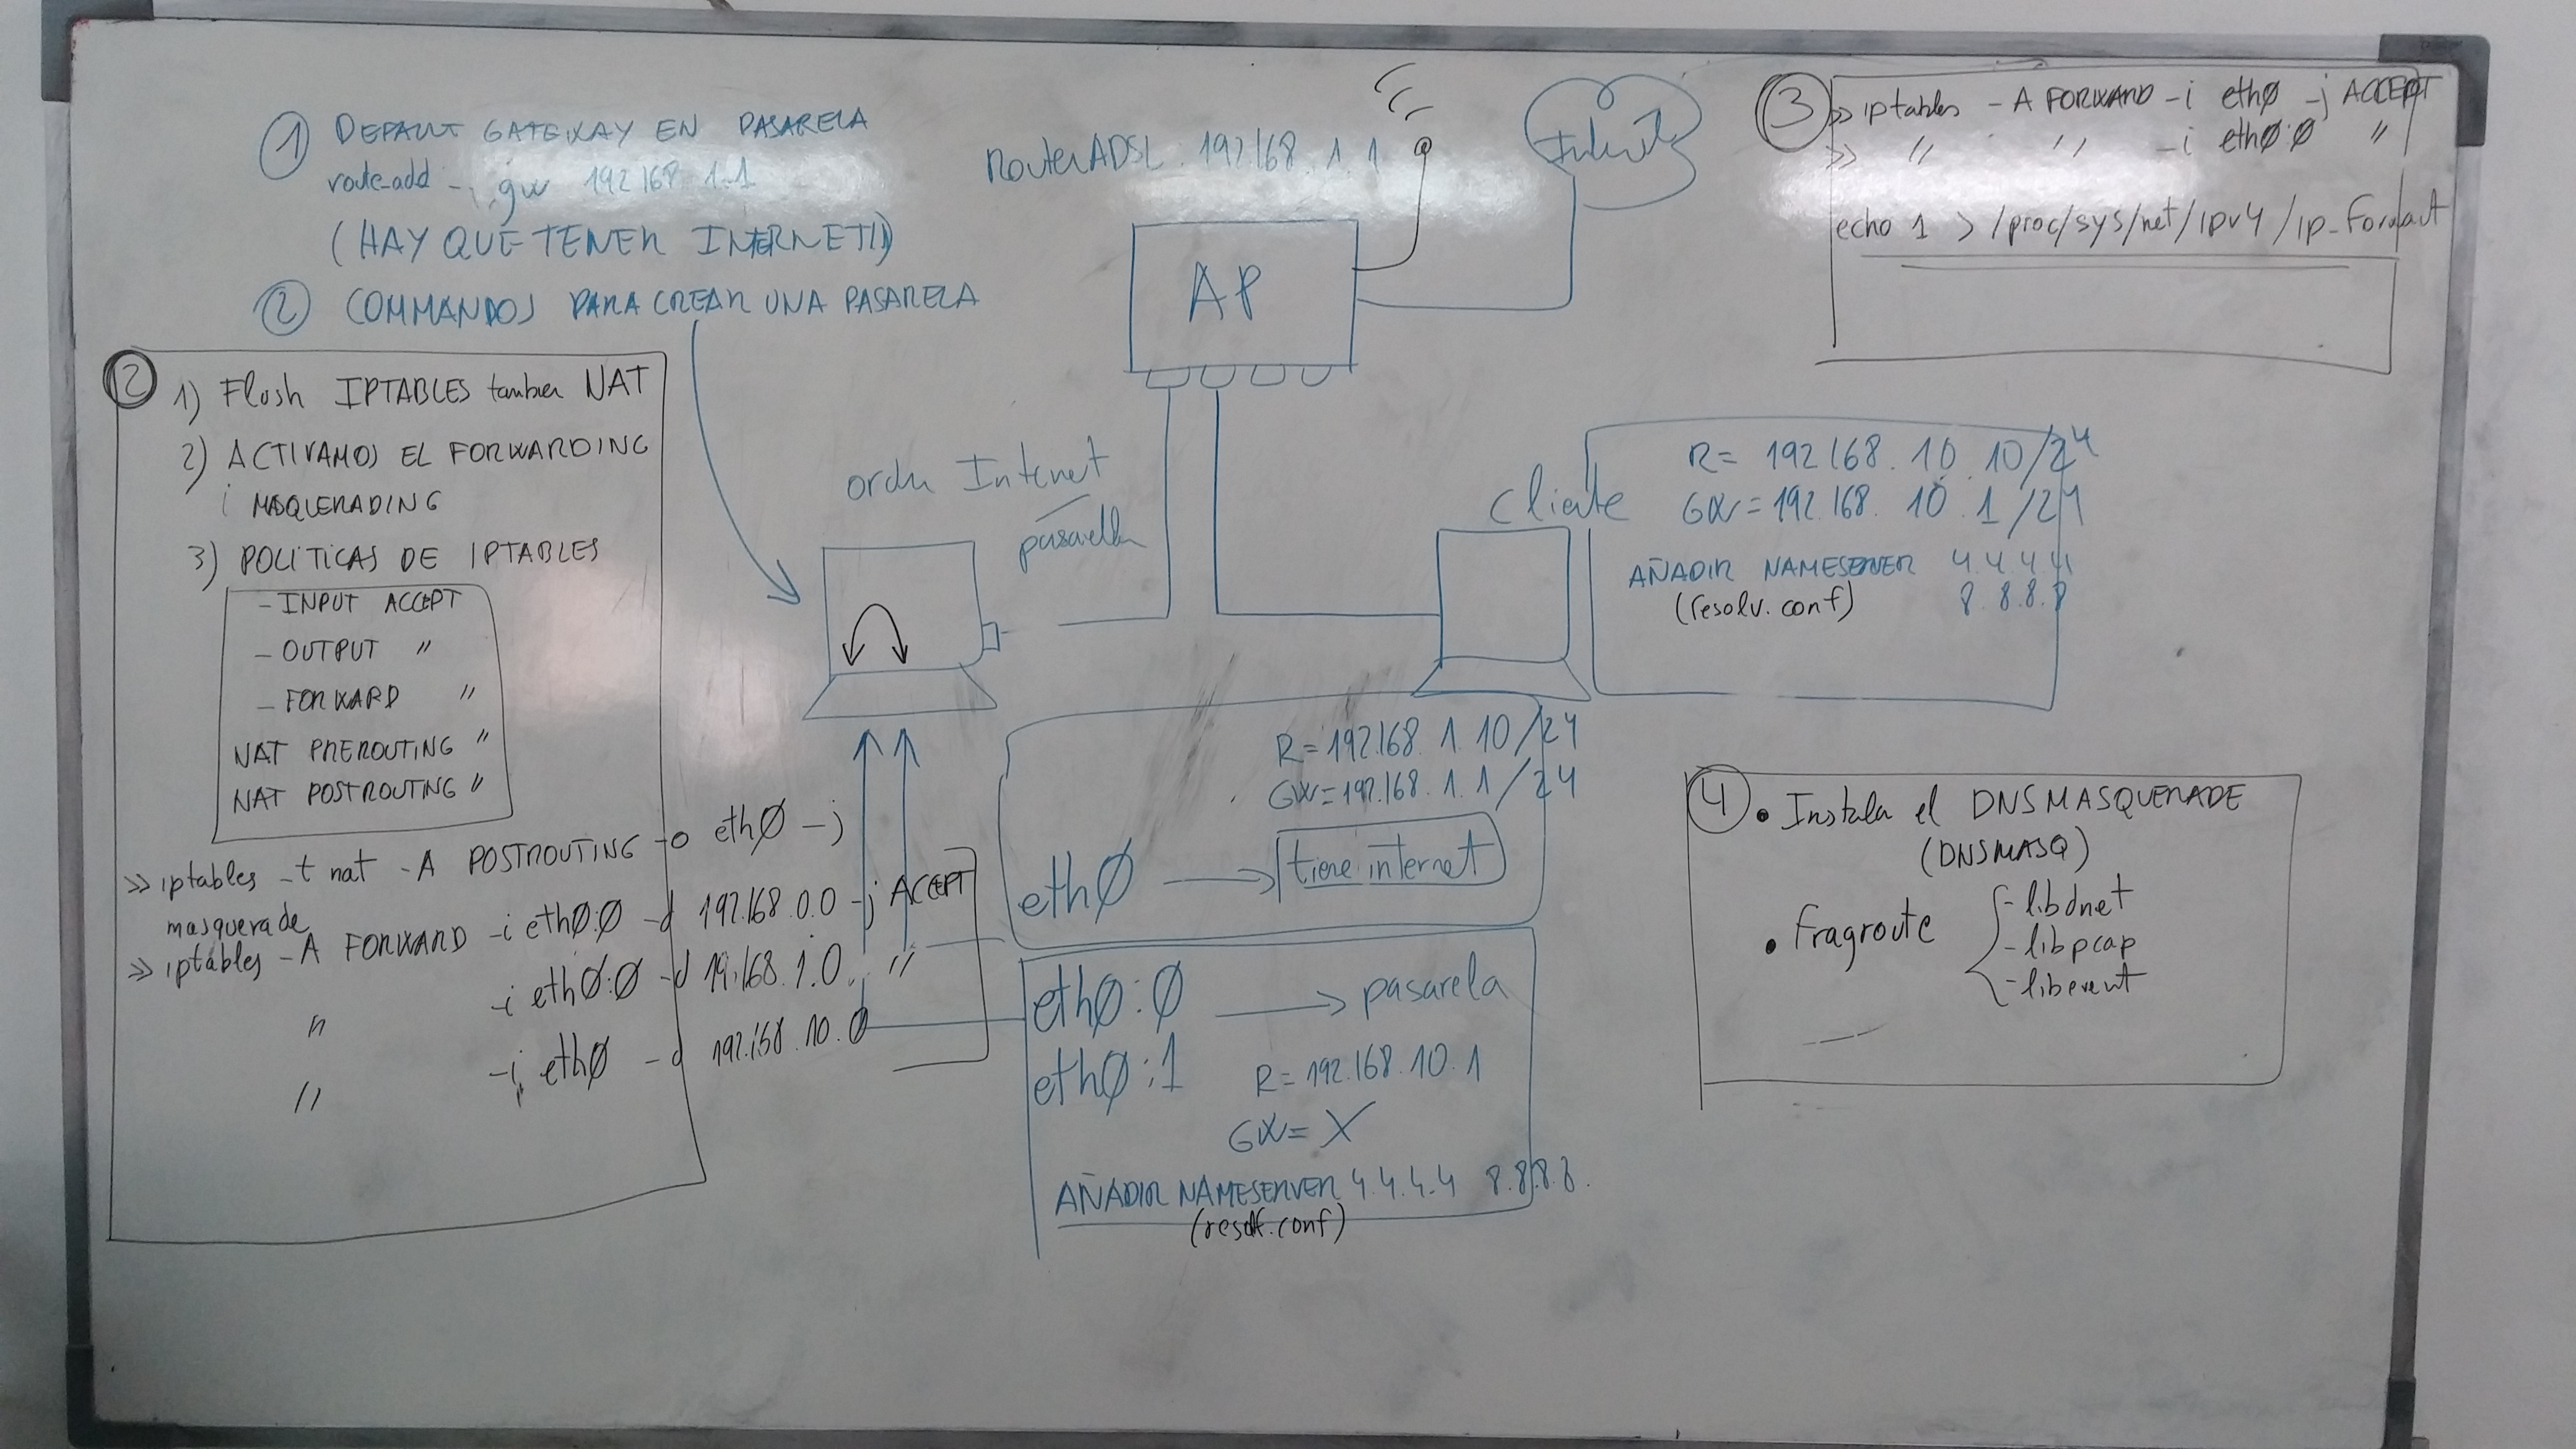 ① DEFAULT GATEWAY EN PASARELA
route add - gw 192 168 1.1
(HAY QUE TENER INTERNET!!)
② COMMANDOS PARA CREAR UNA PASARELA
② 1) Flush IPTABLES tambien NAT
2) ACTIVAMOS EL FORWARDING
i MASQUERADING
3) POLITICAS DE IPTABLES
- INPUT ACCEPT
- OUTPUT "
- FORWARD "
NAT PREROUTING "
NAT POSTROUTING "
>> iptables -t nat -A POSTROUTING -o ethØ -j
masquerade
>> iptables -A FORWARD -i ethØ:Ø -d 192.168.0.0 -j ACCEPT
" -i ethØ:Ø -d 19.168.1.0. "
" -i ethØ -d 192.168.10.0
Router ADSL 192.168.1.1
Internet
AP
orden Internet
pasarella
Cliente
R= 192 168. 10. 10/24
GW= 192.168. 10. 1 /24
AÑADIR NAMESERVER 4.4.4.4
8.8.8.8
(resolv.conf)
R= 192.168 1.10/24
GW=192.168.1.1/24
ethØ → tiene internet
ethØ:Ø → pasarela
ethØ:1 R= 192.168.10.1
GW= X
AÑADIR NAMESERVER 4.4.4.4 8.8.8.8.
(resolv.conf)
③ >> iptables -A FORWARD -i ethØ -j ACCEPT
>> " " -i ethØ:Ø "
echo 1 > /proc/sys/net/ipv4/
④ • Instala el DNSMASQUERADE
(DNSMASQ)
• Fragroute
- libdnet
- libpcap
- libevent